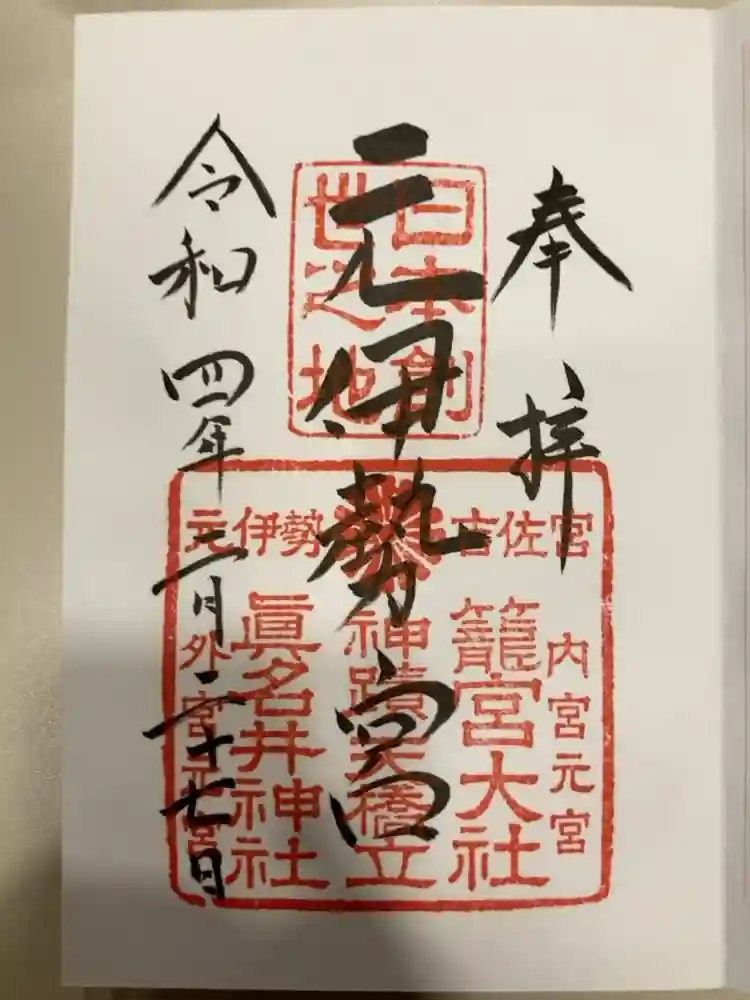 奉拝
元伊勢宮
令和四年三月二十七日
日本創
世之地
元伊勢
古佐宮
内宮元宮
籠宮大社
神蹟天橋立
眞名井神社
外宮元宮